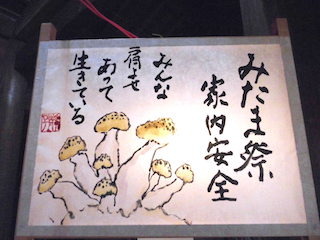 みたま祭
家内安全
みんな
肩寄せ
あって
生きている